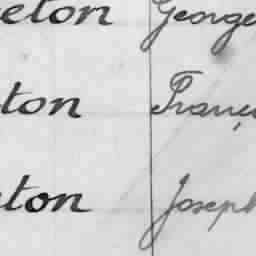 eton George
ton Franç
ton Joseph